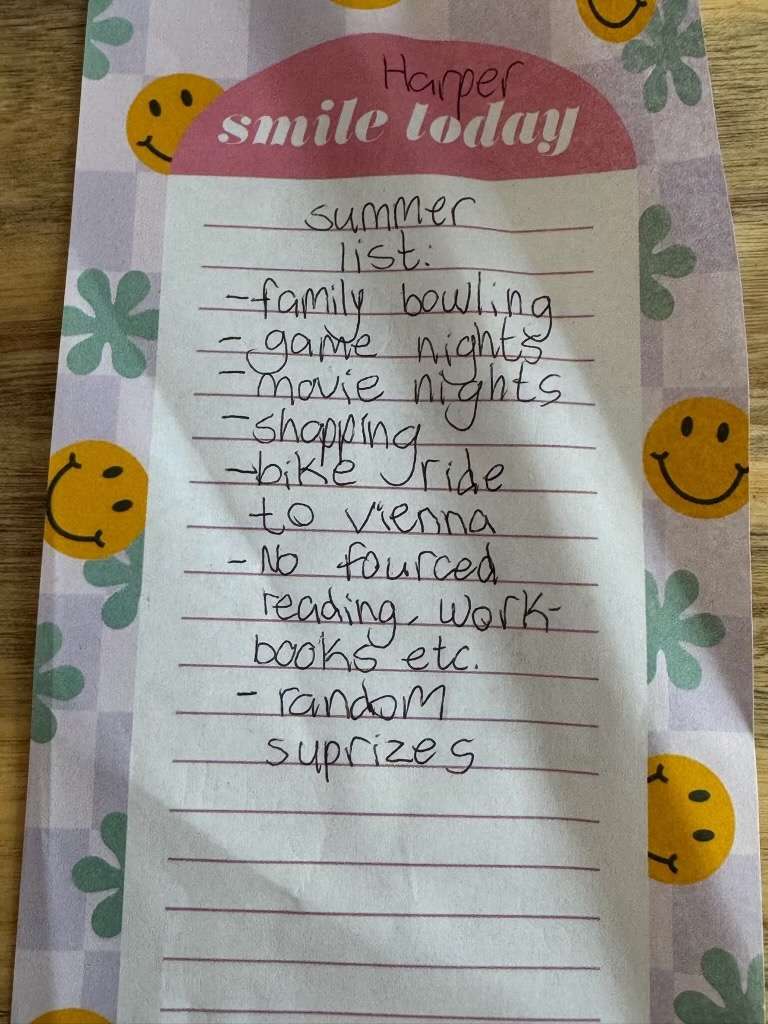 Harper
smile today
summer
list:
- family bowling
- game nights
- movie nights
- shopping
- bike ride
to vienna
- No fourced
reading, work-
books etc.
- random
suprizes